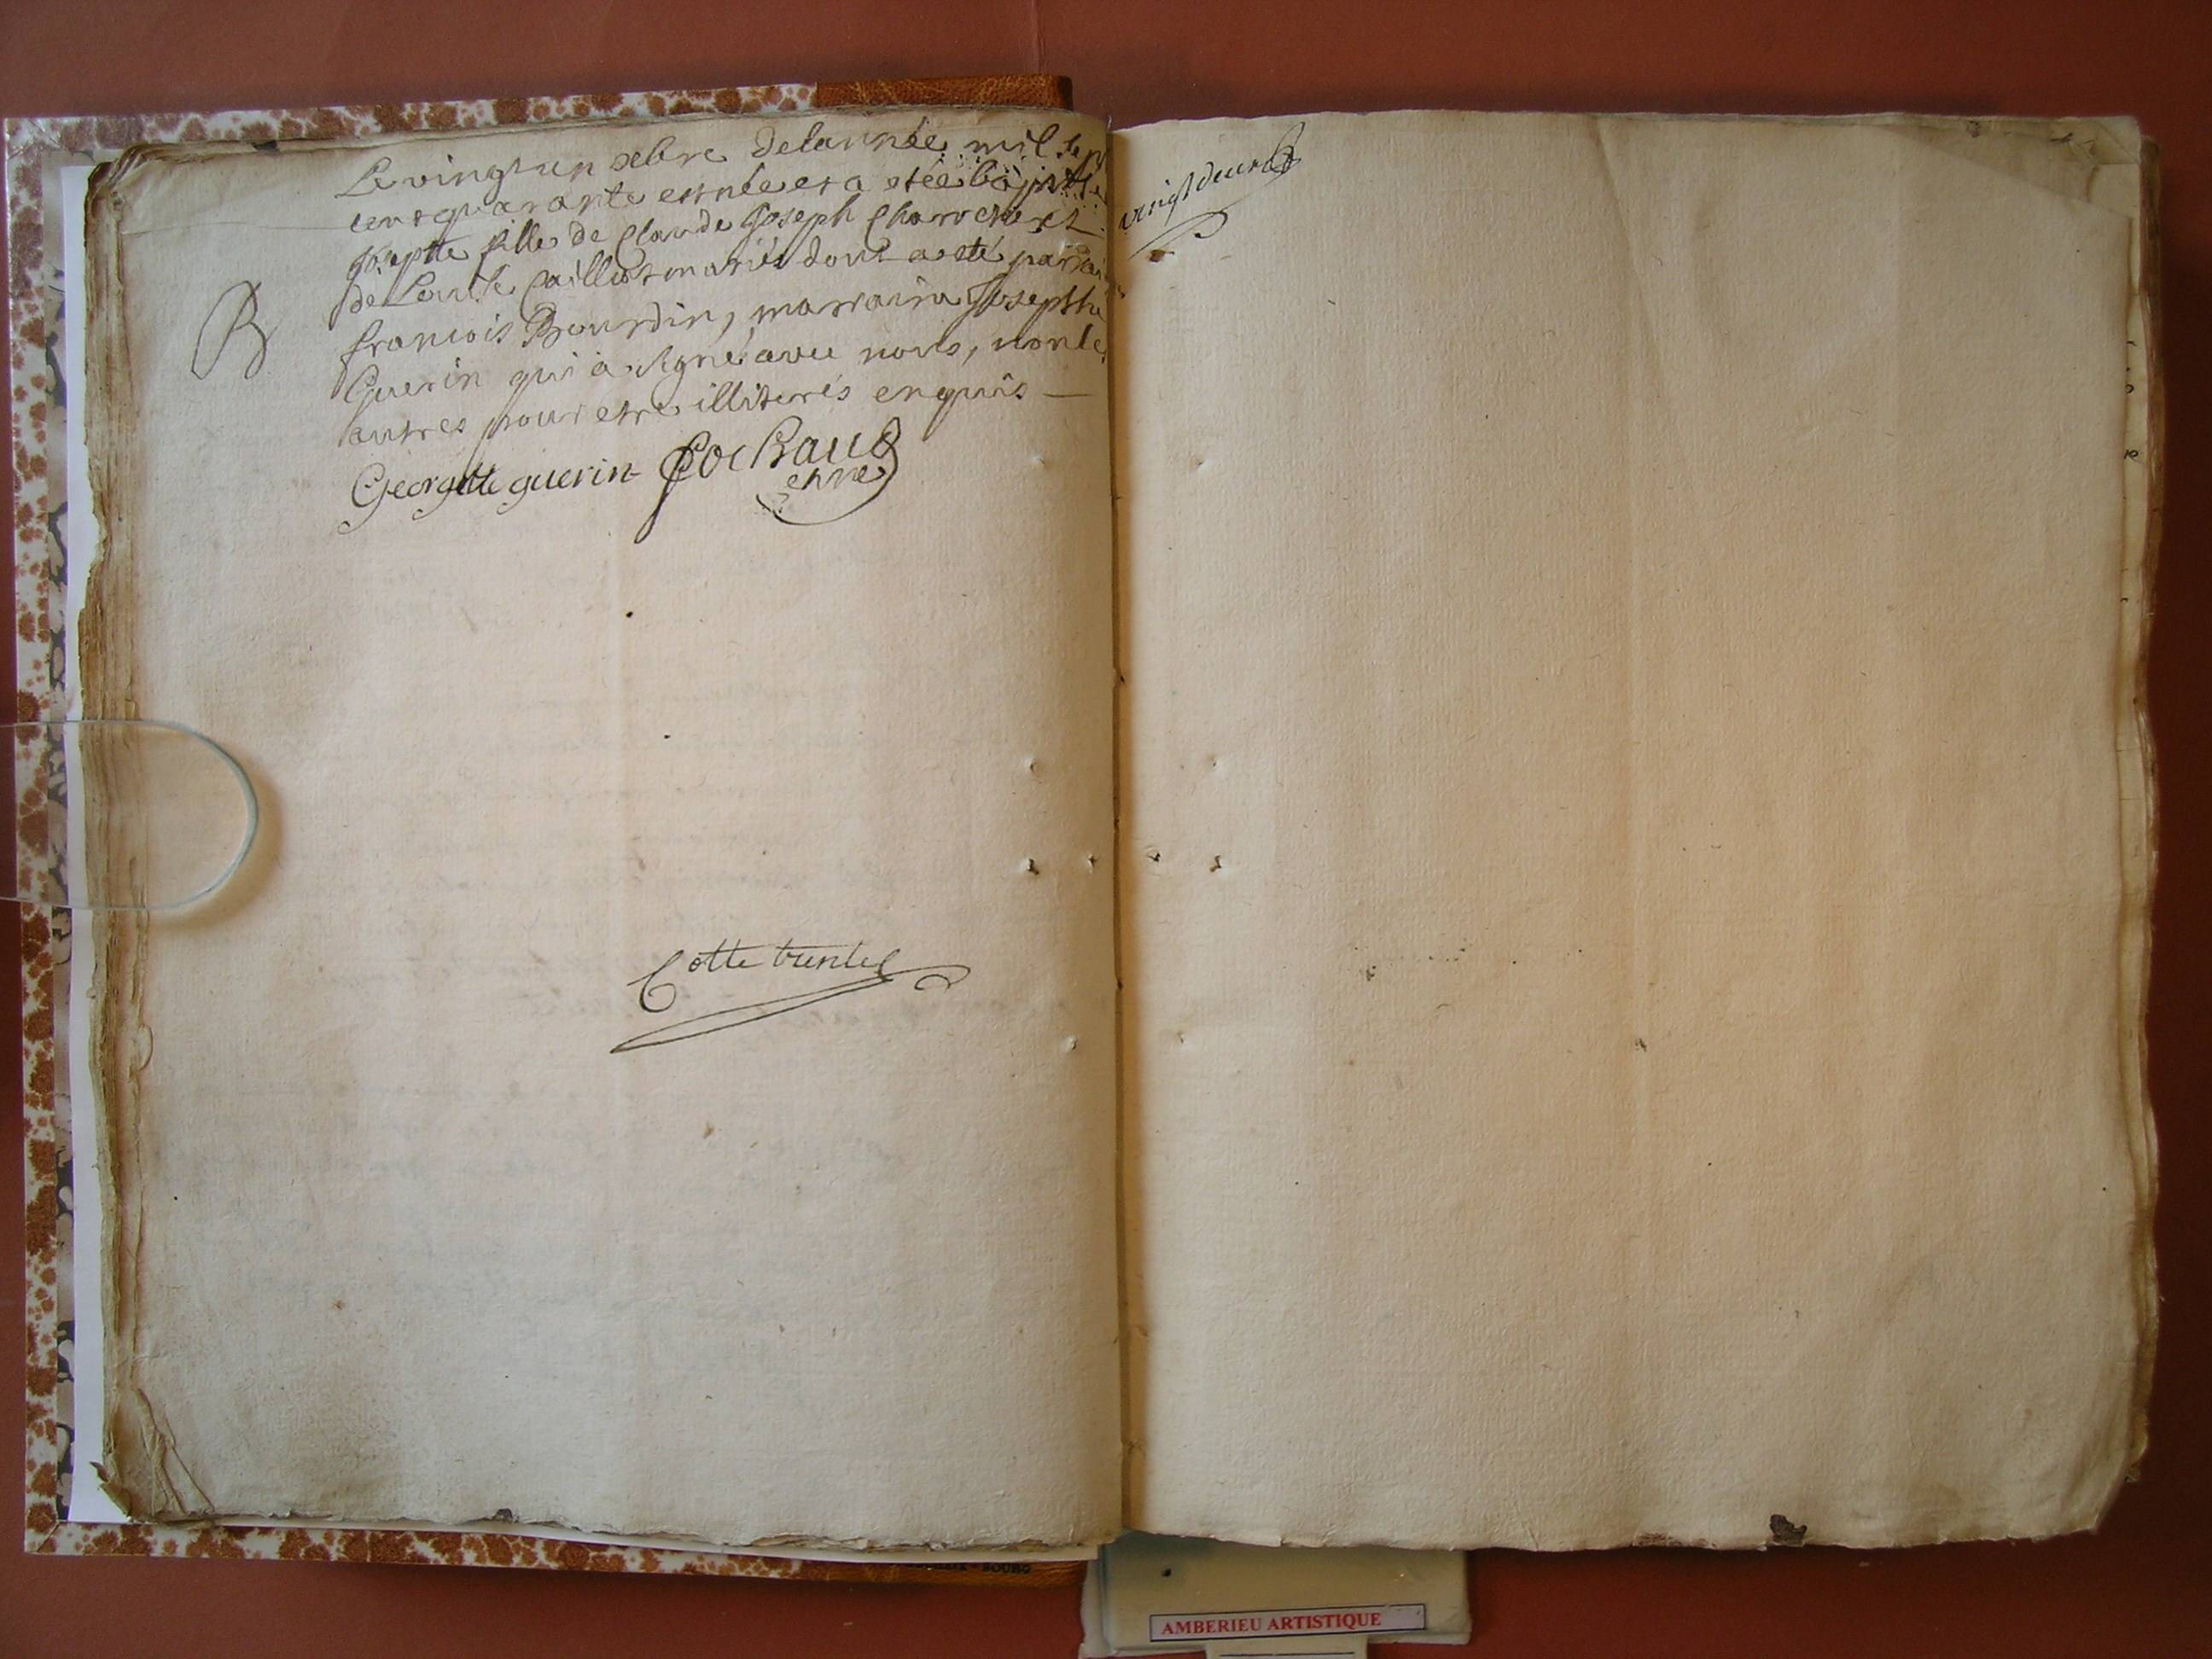 Le vingt un xbre de lannée mil sept
cent quarante est née et a etée baptisée
Josepte fille de Claude Joseph Charvet et
de Louise Caillet mariés dont a eté parrain
francois Bourdin, marraine Josephte
Guerin qui a signé avec nous, non les
autres pour etre illiterés enquis —
B
Georgette guerin Cochaud
Cotte trente
vingt deux
AMBERIEU ARTISTIQUE